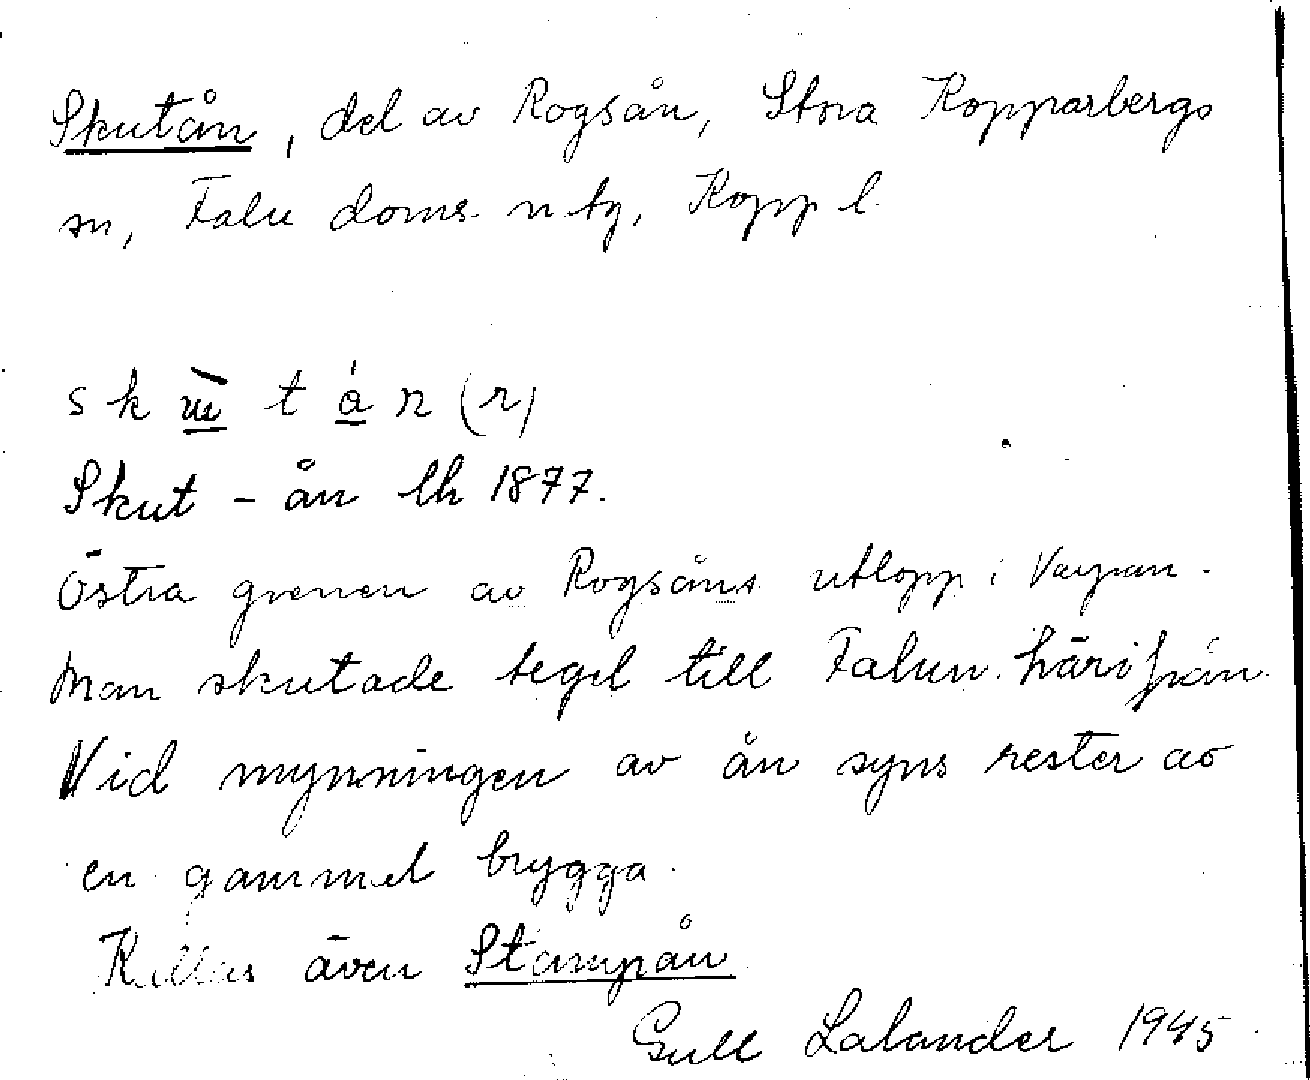 Skutån, del av Rogsån, Stora Kopparbergs
sn, Falu doms. n tg, Kopp l.
Skut - ån lk 1877.
Östra grenen av Rogsåns utlopp i Varpan.
Man skutade tegel till Falun härifrån.
Vid mynningen av ån syns rester av
en gammal brygga.
Kallas även Stampån
Gull Lalander 1945.